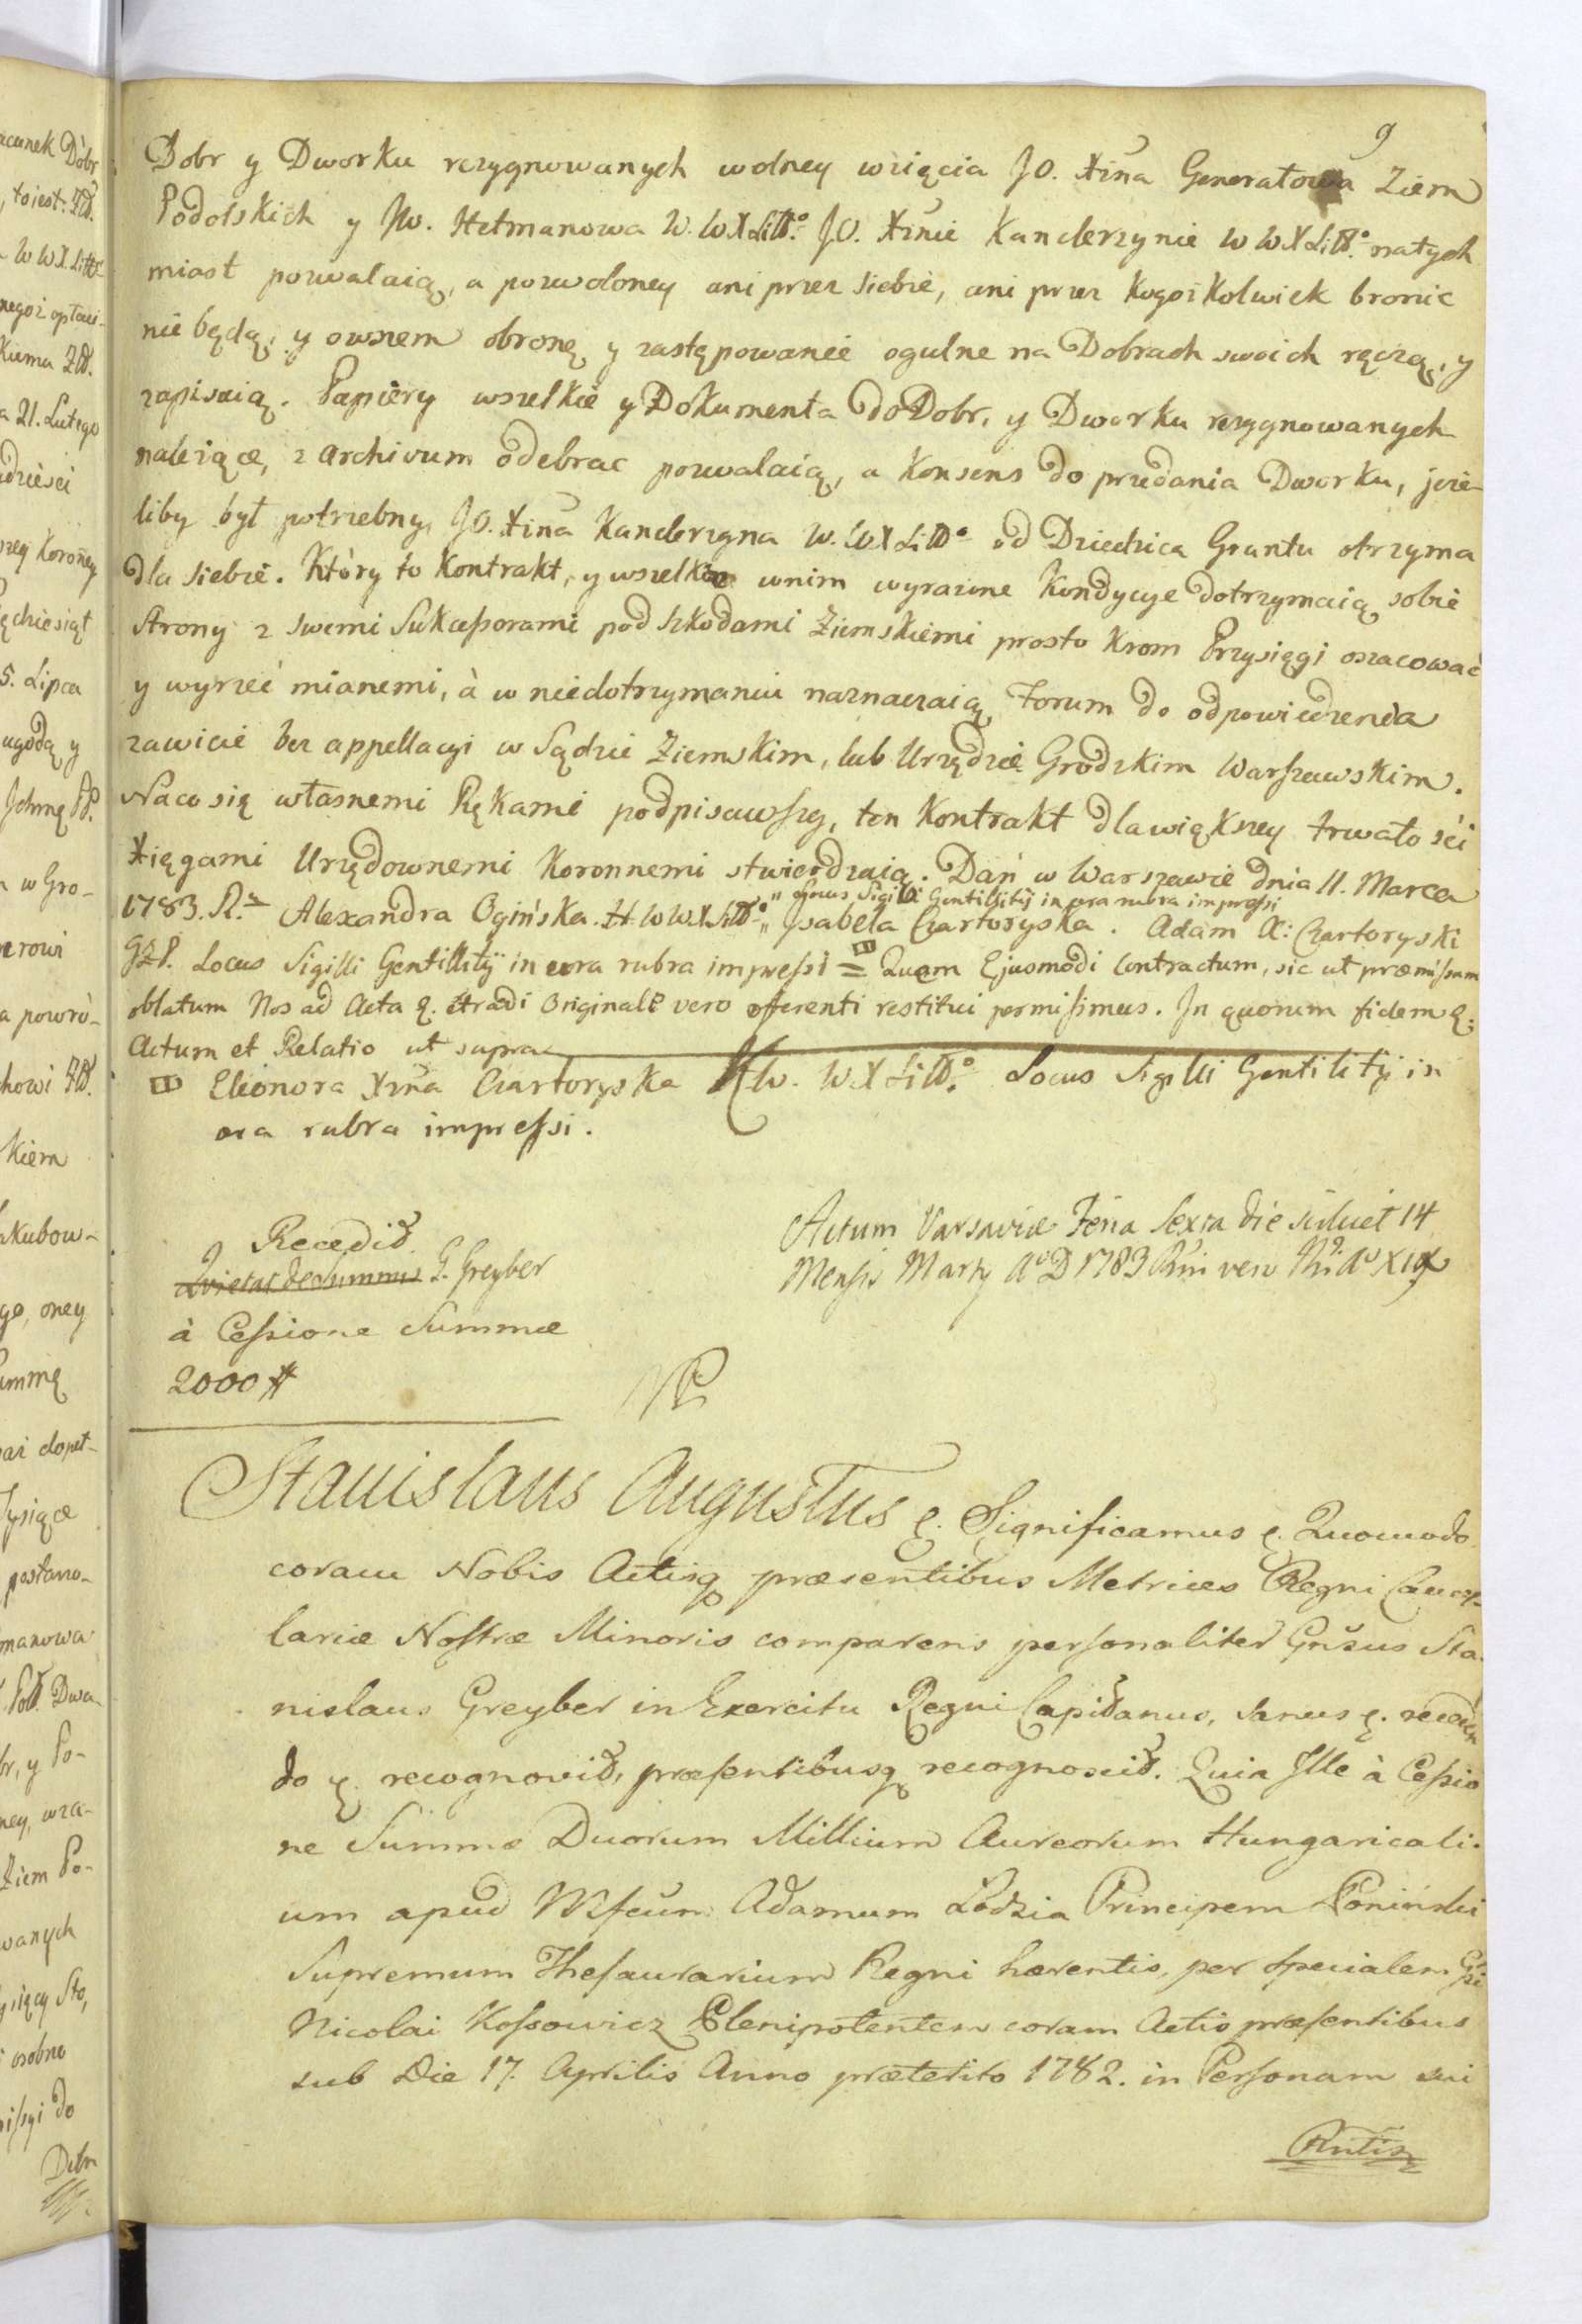 9
Dobr y Dworku rezygnowanych wolney wzięcia JO. Xżna Generałowa Ziem
Podolskich y JW. Hetmanowa W. W X Litt. JO. Xżnie Kanclerzynie W W X Litt. natych
miast pozwalaią, a pozwoloney ani przez siebie, ani przez kogożkolwiek bronic
nie będą, y owszem obronę y zastępowanie ogulne na Dobrach swoich ręczą, y
zapisuią. Papiery wszelkie y Dokumenta do Dobr, y Dworku rezygnowanych
należące, z Archivum odebrac pozwalaią, a Konsens do przedania Dworku, jeże-
liby był potrzebny, JO. Xżna Kanclerzyna W. W X Litt. od Dziedzica Gruntu otrzyma
dla siebie. Który to Kontrakt, y wszelkie wnim wyrażone Kondycye dotrzymaią sobie
Strony z swemi Sukceßorami pod szkodami Ziemskiemi prosto krom Przysięgi oszacować
y wyrzeć mianemi, à w niedotrzymaniu naznaczaią Forum do odpowiedzenia
zawicie bez appellacyi w Sądzie Ziemskim, lub Urzędzie Grodzkim Warszawskim.
Naco się własnemi Rękami podpisawszy, ten Kontrakt dla większey trwałości
Xięgami Urzędownemi Koronnemi stwierdzaią. Dań w Warszawie dnia 11. Marca
" Locus Sigilli Gentillitij in cera rubra impreßi
1783. R. Alexandra Ogińska H. W W. X Litt. " Jsabela Czartoryska. Adam X: Czartoryski
GZP. Locus Sigilli Gentillitij in cera rubra impreßi = Quem Ejusmodi Contractum, sic ut præmißum
oblatum Nos ad Acta &. Etradi Originale vero offerenti restitui permisimus. In quorum fidem &.
Actum et Relatio ut supra
Eleonora Xżna Czartoryska KW. W X Litt. Locus Sigilli Gentilitij in
cera rubra impreßi.
Actum Varsaviæ Feria Sexta die scilicet 14
Mensis Martij A D 1783 Rni vero Nri A XIX
Recedit
Quietat de Summis G. Greyber
à Ceßione Summæ
2000 #
Stanislaus Augustus &. Significamus &. Quomodo
coram Nobis Actisq præsentibus Metrices Regni Cancel-
lariæ Nostræ Minoris comparens personaliter Gnsus Sta-
nislaus Greyber in Exercitu Regni Capitanus, Sanus &. receden
do &. recognovit, præsentibusq recognoscit. Quia Jlle à Ceßio
ne Summæ Duorum Millium Aureorum Hungaricali-
um apud Adamum Lodzia Principem Poniński
Supremum Thesaurarium Regni hærentis, per specialem Gsi
Nicolai Koßowicz Plenipotentem coram Actis præsentibus
sub Die 17. Aprilis Anno præterito 1782. in Personam sui